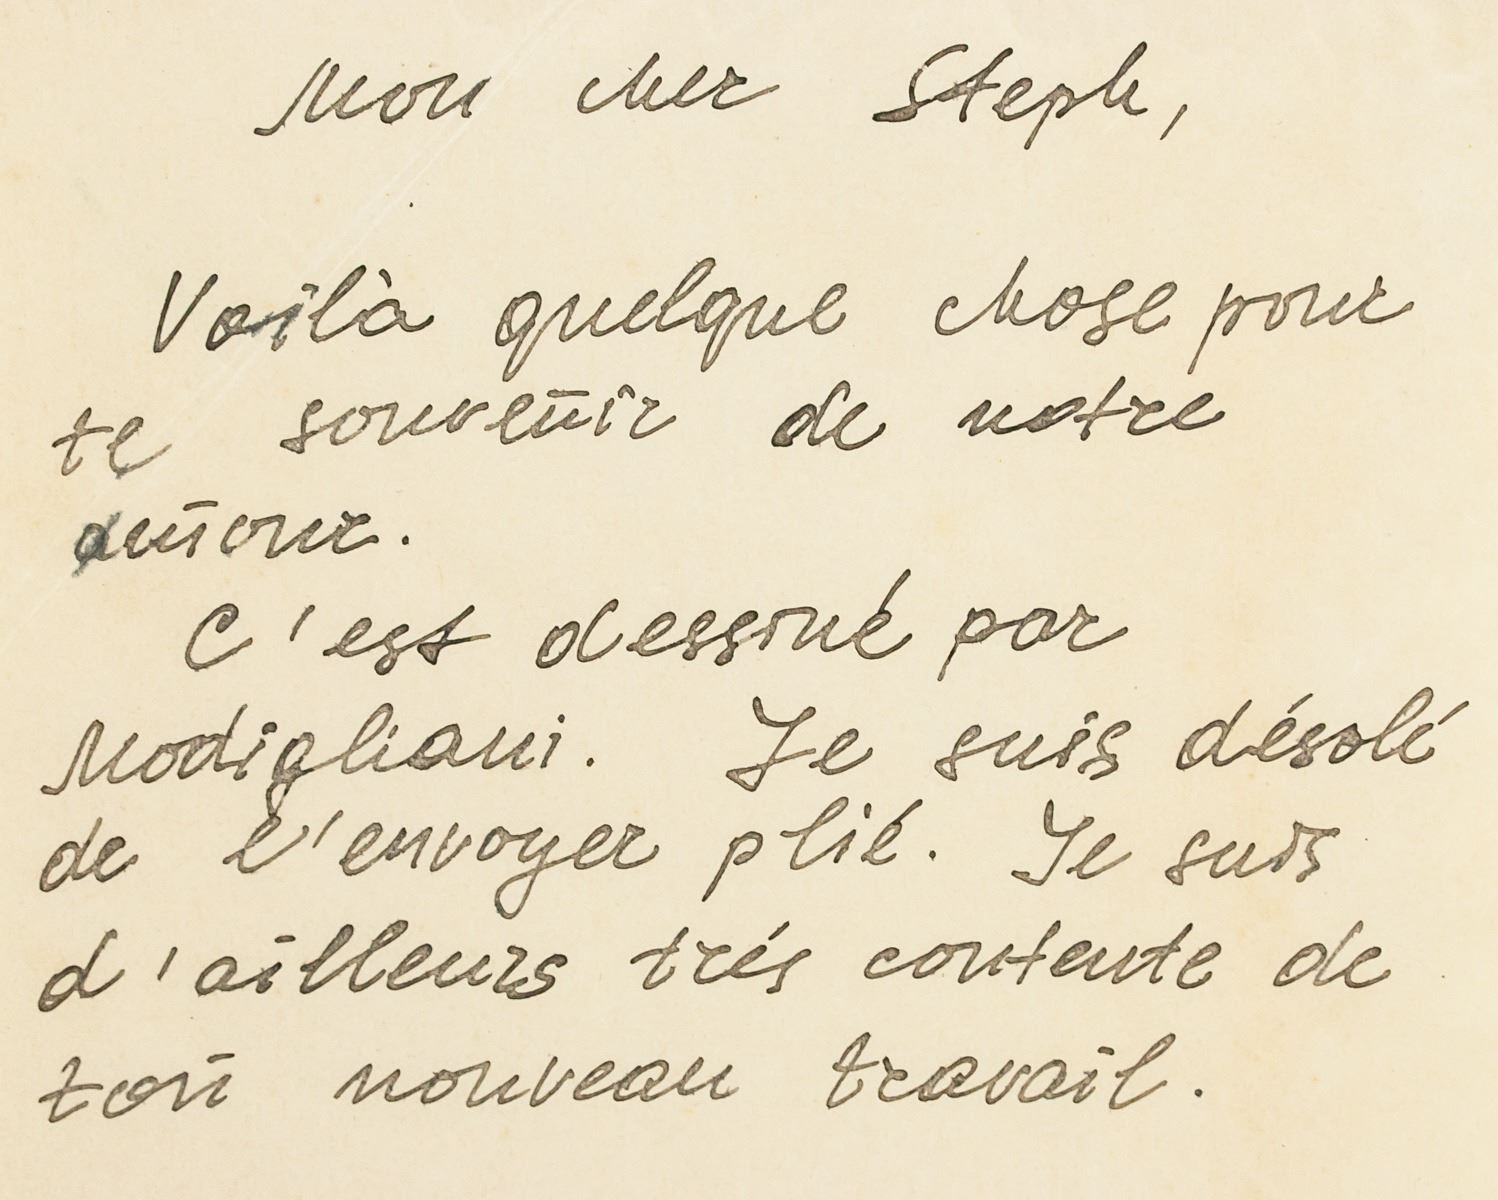 Mon cher Steph,
Voilà quelque chose pour
te souvenir de notre
amour.
C'est dessiné par
Modigliani. Je suis désolé
de l'envoyer plié. Je suis
d'ailleurs trés contente de
ton nouveau travail.